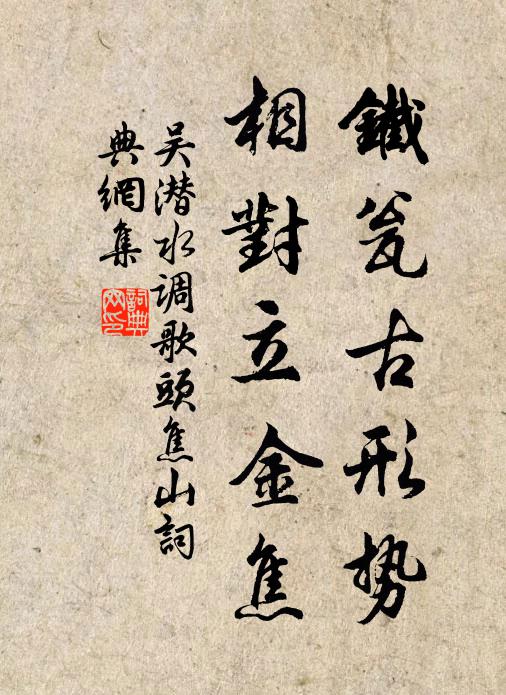 鐵瓮古形势
相對立金焦
吴潜水调歌頭焦山詞
典網集
詞典网印